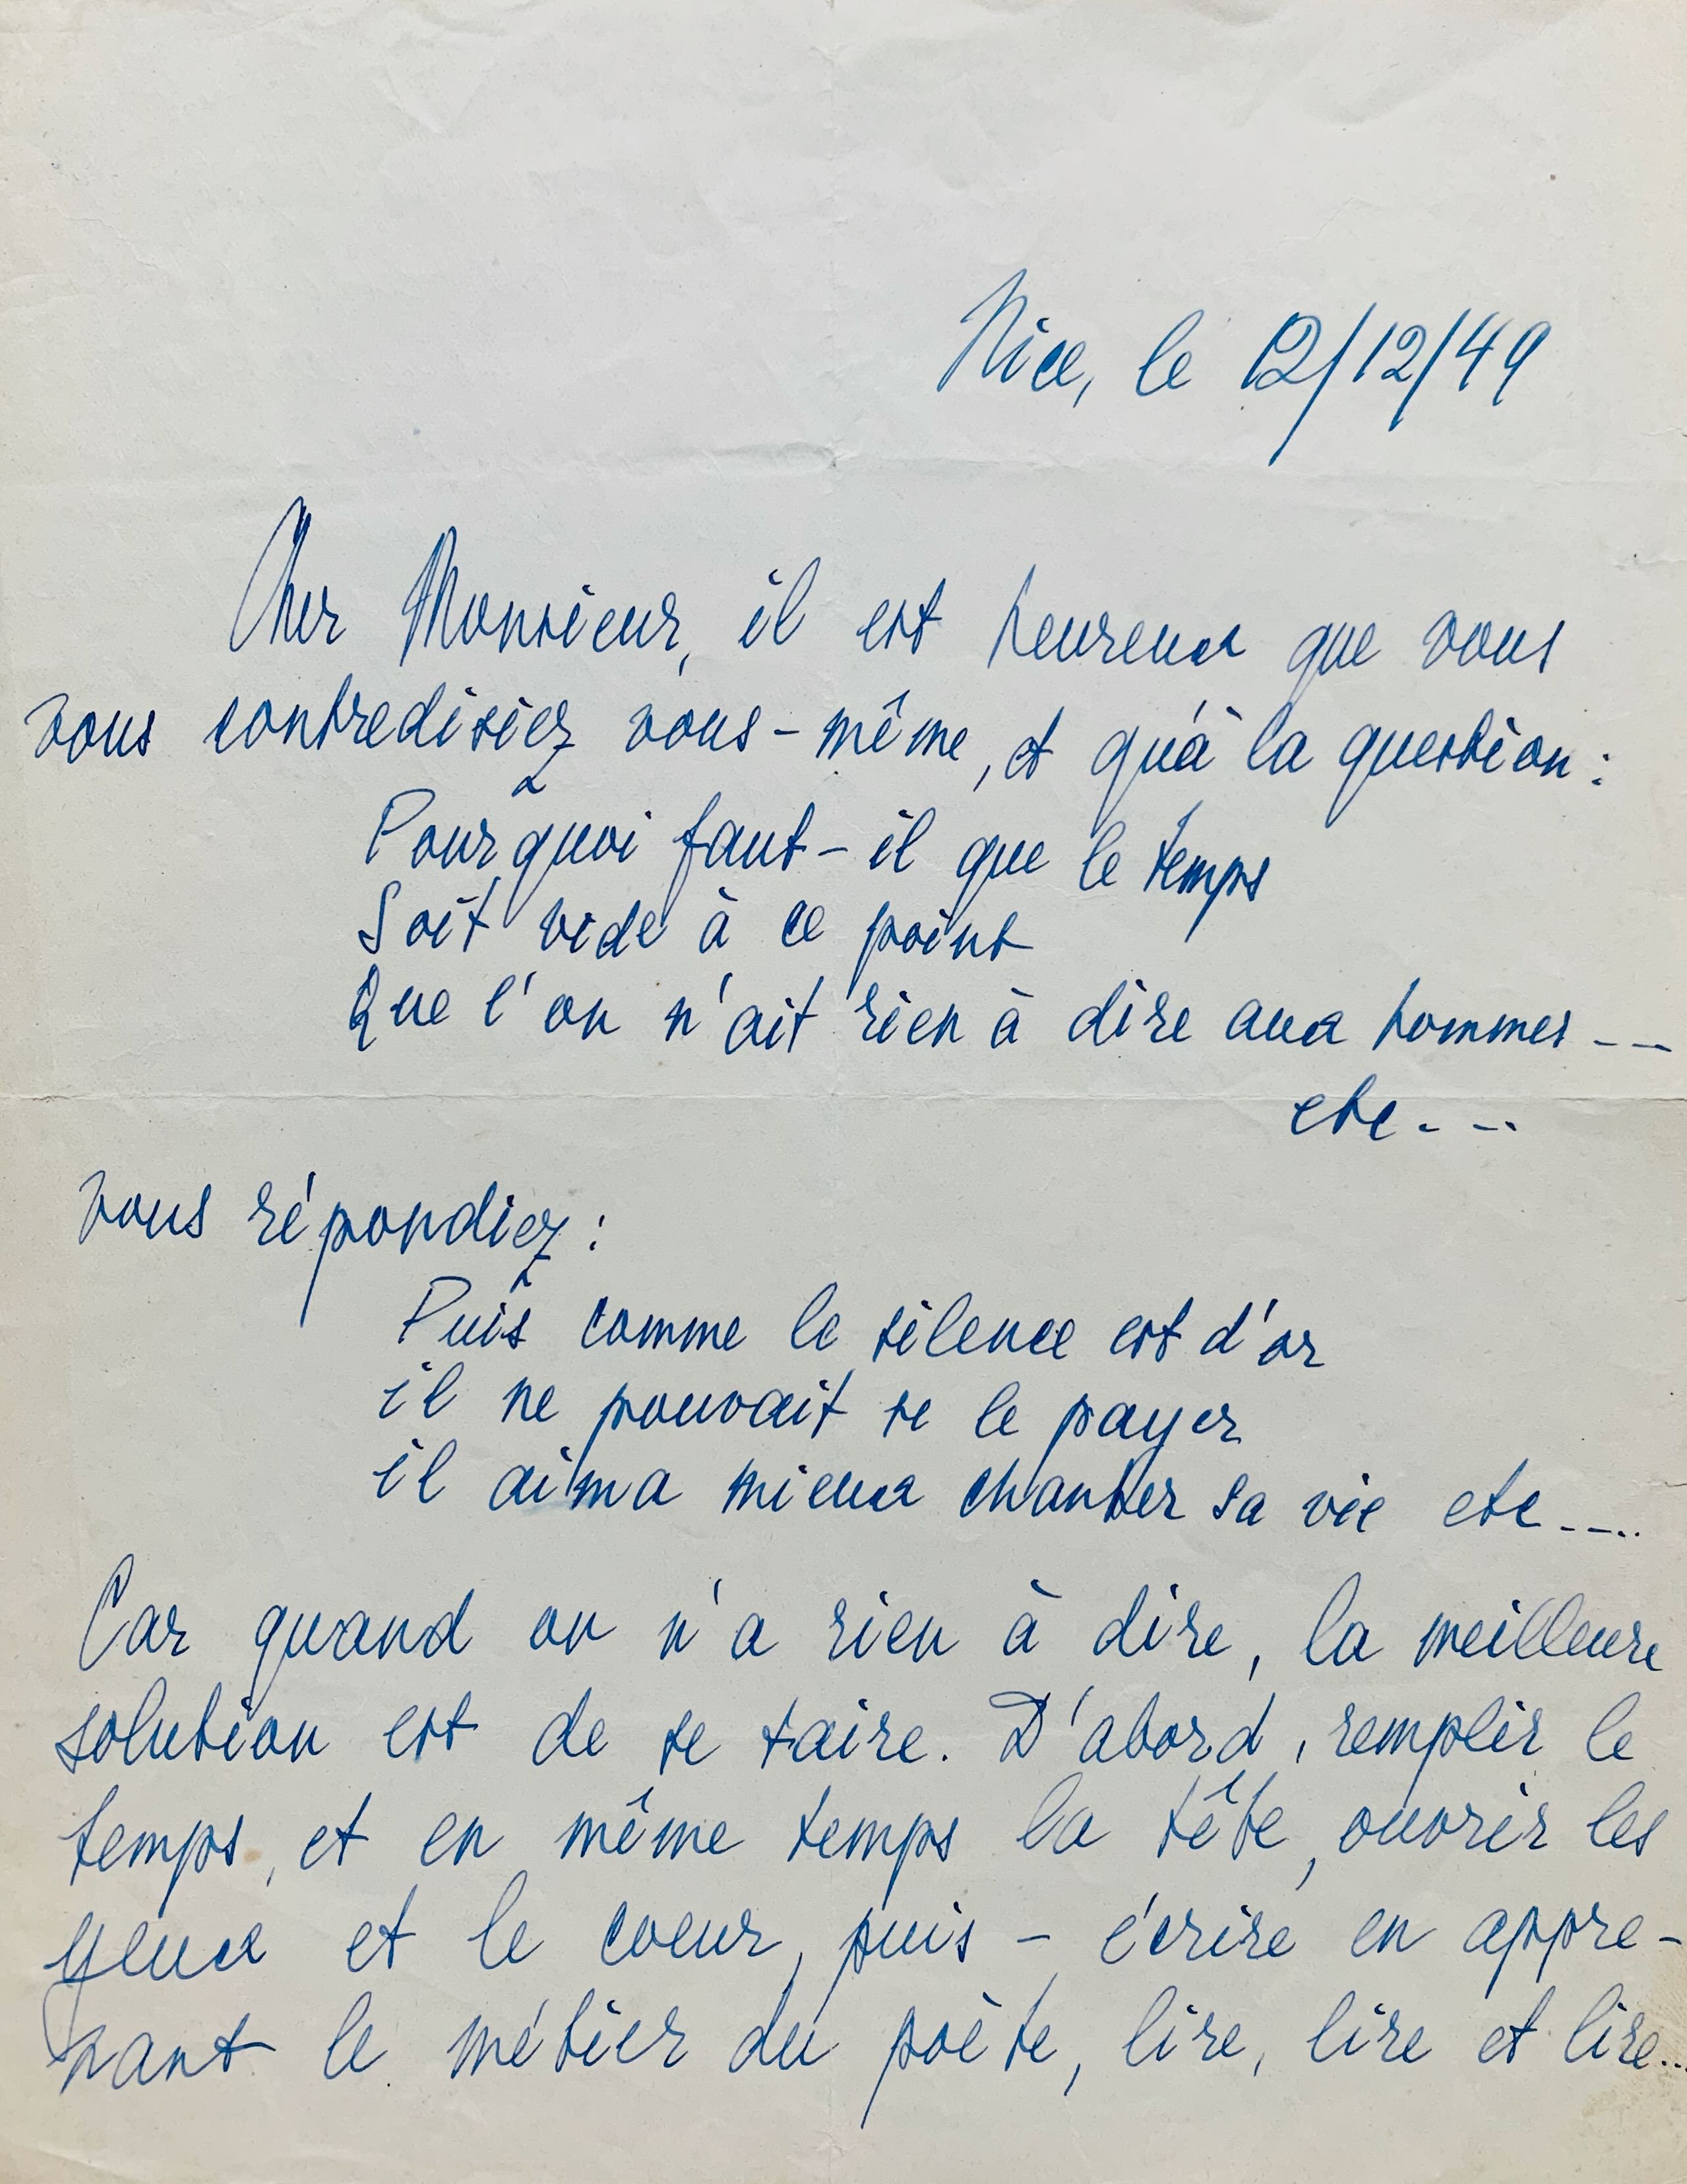 Nice, le 12/12/49
Cher Monsieur, il est heureux que vous
vous contredisiez vous-même, et qu'à la question :
Pourquoi faut-il que le temps
Soit vide à ce point
Que l'on n'ait rien à dire aux hommes ---
etc. --
vous répondiez :
Puis comme le silence est d'or
il ne pouvait se le payer
il aima mieux chanter sa vie etc ----
Car quand on n'a rien à dire, la meilleure
solution est de se taire. D'abord, remplir le
temps, et en même temps la tête, ouvrir les
yeux et le coeur, puis - écrire en appre-
nant le métier du poète, lire, lire et lire...